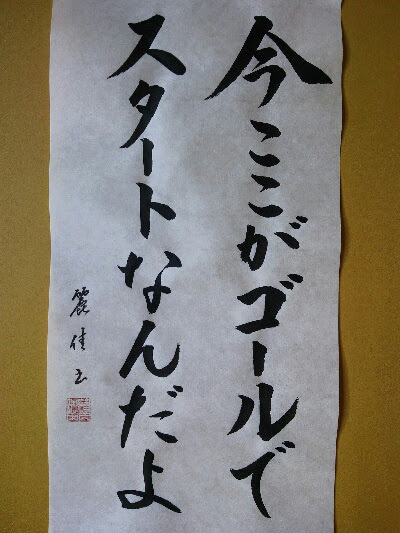 今ここがゴールで
スタートなんだよ
麗佳書